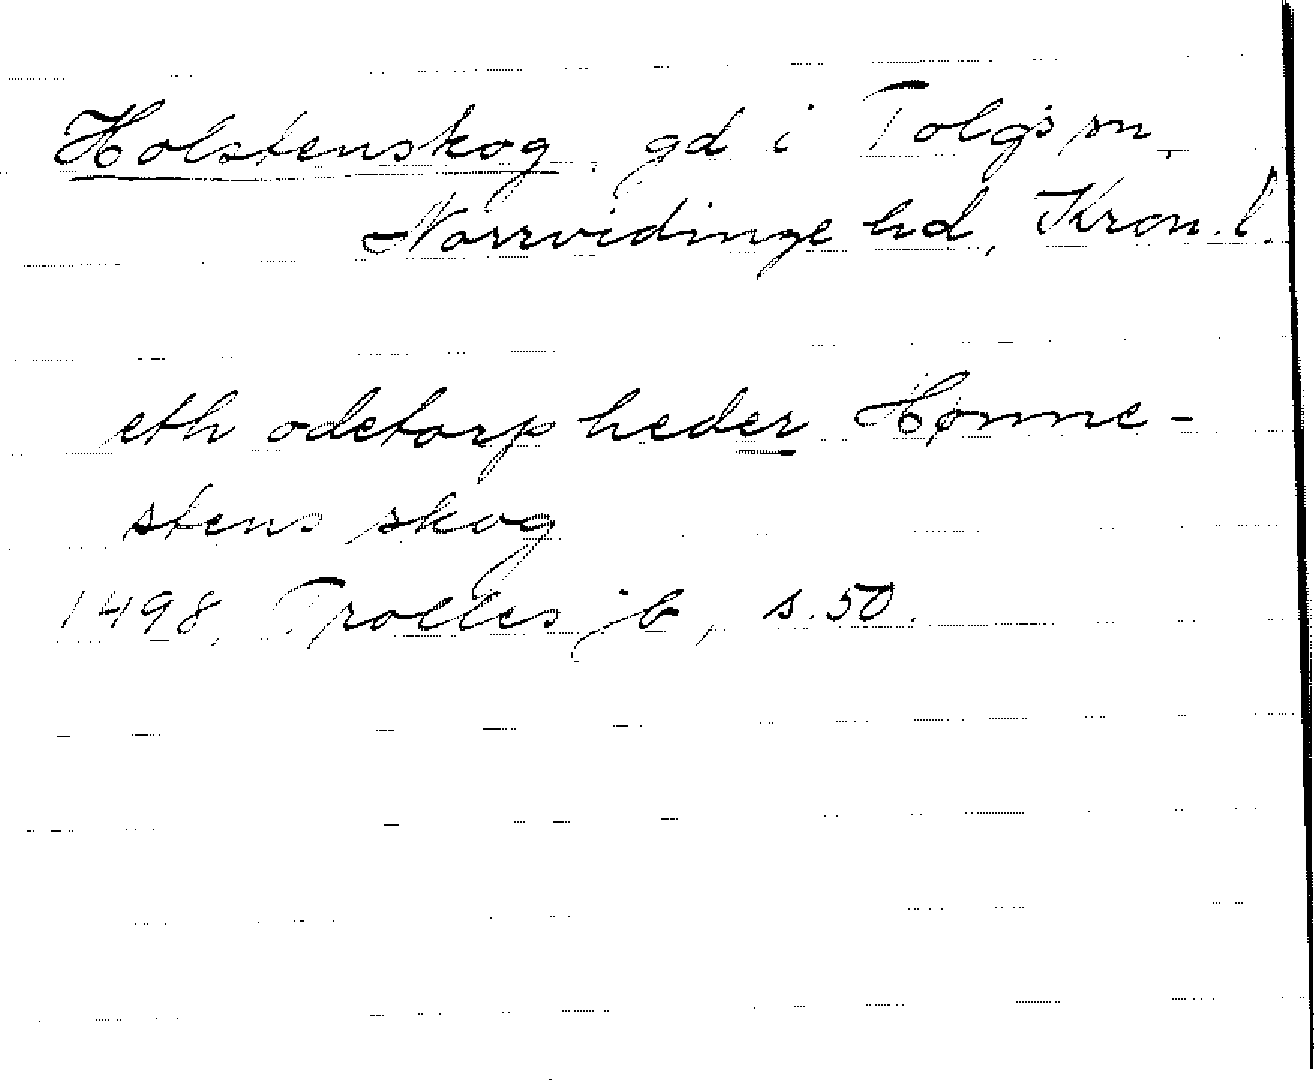 Holstenskog, gd i Tolgs sn,
Norrvidinge hd, Kron. l.
eth ødetorp heder Hønne-
stens skog
1498, Trolles jb, s. 50.